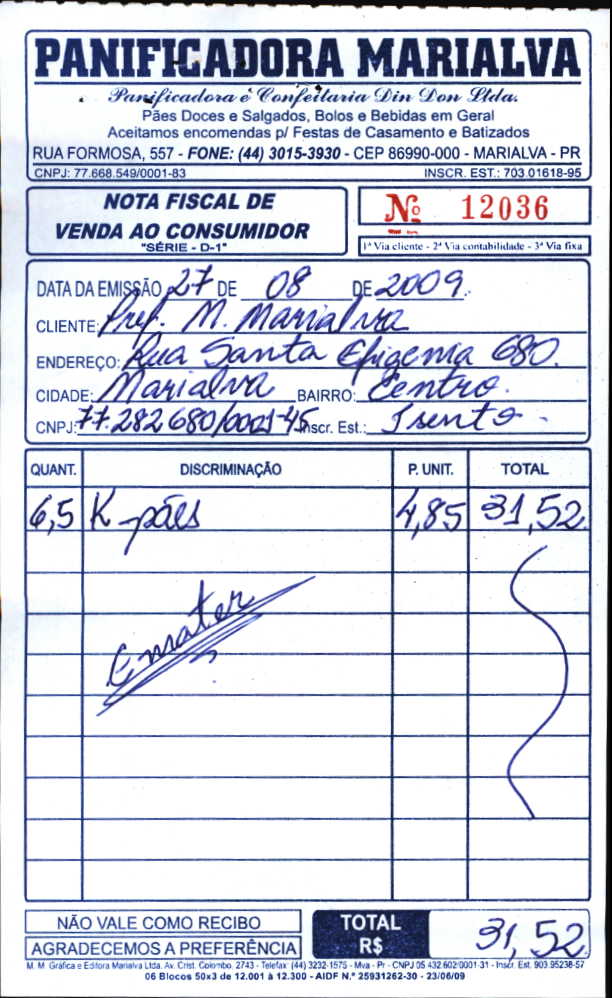 PANIFICADORA MARIALVA
Panificadora e Confeitaria Din Don Ltda.
Pães Doces e Salgados, Bolos e Bebidas em Geral
Aceitamos encomendas p/ Festas de Casamento e Batizados
RUA FORMOSA, 557 - FONE: (44) 3015-3930 - CEP 86990-000 - MARIALVA - PR
CNPJ: 77.668.549/0001-83 INSCR. EST.: 703.01618-95
NOTA FISCAL DE
VENDA AO CONSUMIDOR
"SÉRIE - D-1"
Nº 12036
1ª Via cliente - 2ª Via contabilidade - 3ª Via fixa
DATA DA EMISSÃO 27 DE 08 DE 2009
CLIENTE: Pref. M. Marialva
ENDEREÇO: Rua Santa Efigenia 680.
CIDADE: Marialva BAIRRO: Centro.
CNPJ: 77.282680/0001-45 Inscr. Est.: Isento -
QUANT. DISCRIMINAÇÃO P. UNIT. TOTAL
6,5 K-pães 4,85 31,52
Emater
NÃO VALE COMO RECIBO
AGRADECEMOS A PREFERÊNCIA
TOTAL R$ 31,52
M. M. Gráfica e Editora Marialva Ltda. Av. Crist. Colombo, 2743 - Telefax: (44) 3232-1575 - Mva - Pr - CNPJ 05.432.602/0001-31 - Inscr. Est. 903.95238-57
06 Blocos 50x3 de 12.001 à 12.300 - AIDF N.º 25931262-30 - 23/06/09